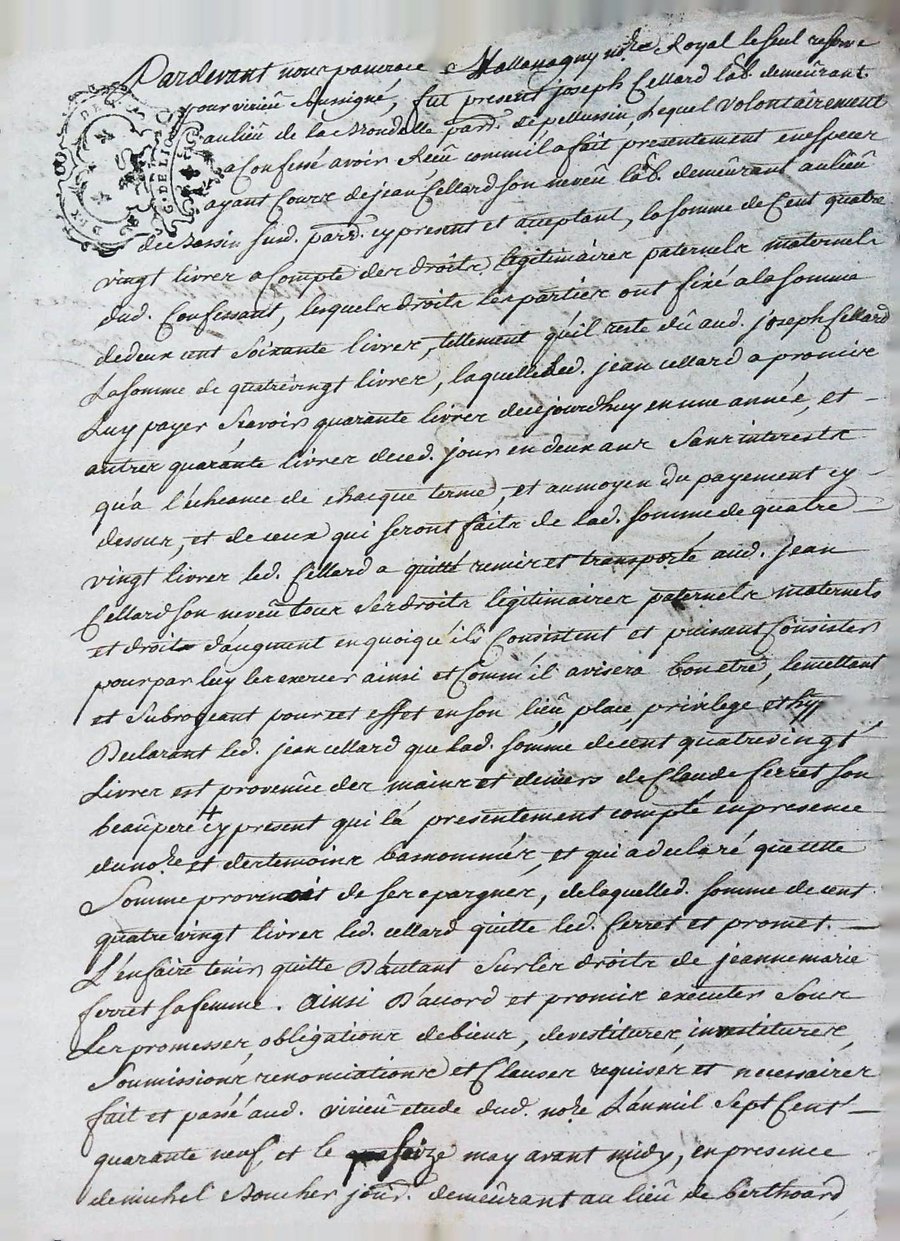 Pardevant nous pancrace Vallanagny no.re Royal le seul reservé
pour virieu soussigné, fut present joseph Cellard lab. demeurant
au lieu de la Rondelle parr. de pellussin, Lequel Volontairement
a Confessé avoir Reçu comm'il a fait presentement en especes
ayant Cours de jean Cellard son neveu lab. demeurant au lieu
de Rossin sud. parr. cy present et aceptant, la somme de Cent quatre
vingt livres a Compte des droits legitimaires paternels maternels
dud. Confessant, lesquels droits les parties ont fixé a la somme
de deux cent soixante livres, tellement qu'il reste dû aud. joseph Cellard
La somme de quatre vingt livres, laquelle led. jean cellard a promis
Luy payer scavoir quarante livres de ce jourdhuy en une année, et
autres quarante livres de ced. jour en deux ans sans interests
qu'a l'écheance de chacque terme, et au moyen du payement cy
dessus, et de ceux qui seront faits de lad. somme de quatre
vingt livres led. Cellard a quitté remis et transporté aud. jean
Cellard son neveu tous ses droits legitimaires paternels maternels
et droits d'augment en quoiqu'ils Consistent et puissent Consister
pour par luy les exercer ainsi et Comm'il avisera bon etre, le mettant
et subrogeant pour cet effet en son lieu, place, privilege et hyp.
Declarant led. jean cellard que lad. somme de cent quatre vingt
Livres est provenüe des mains et deniers de Claude ferret son
beaupere + cy present qui l'a presentement compté en presence
du no.re et des temoins bas nommés, et qui a declaré que cette
Somme provenoit de ses epargnes, de laquelle d. somme de cent
quatre vingt livres led. cellard quitte led. ferret et promet
L'en faire tenir quitte D'autant sur les droits de jeanne marie
ferret sa femme. ainsi D'accord et promis executer sous
Les promesses, obligations de biens, devestitures, investitures,
Soumissions renonciations et Clauses requises et necessaires
fait et passé aud. virieu etude dud. no.re L'an mil Sept Cent
quarante neuf, et le seize may avant midy, en presence
de michel Boucher jour. demeurant au lieu de berthoard